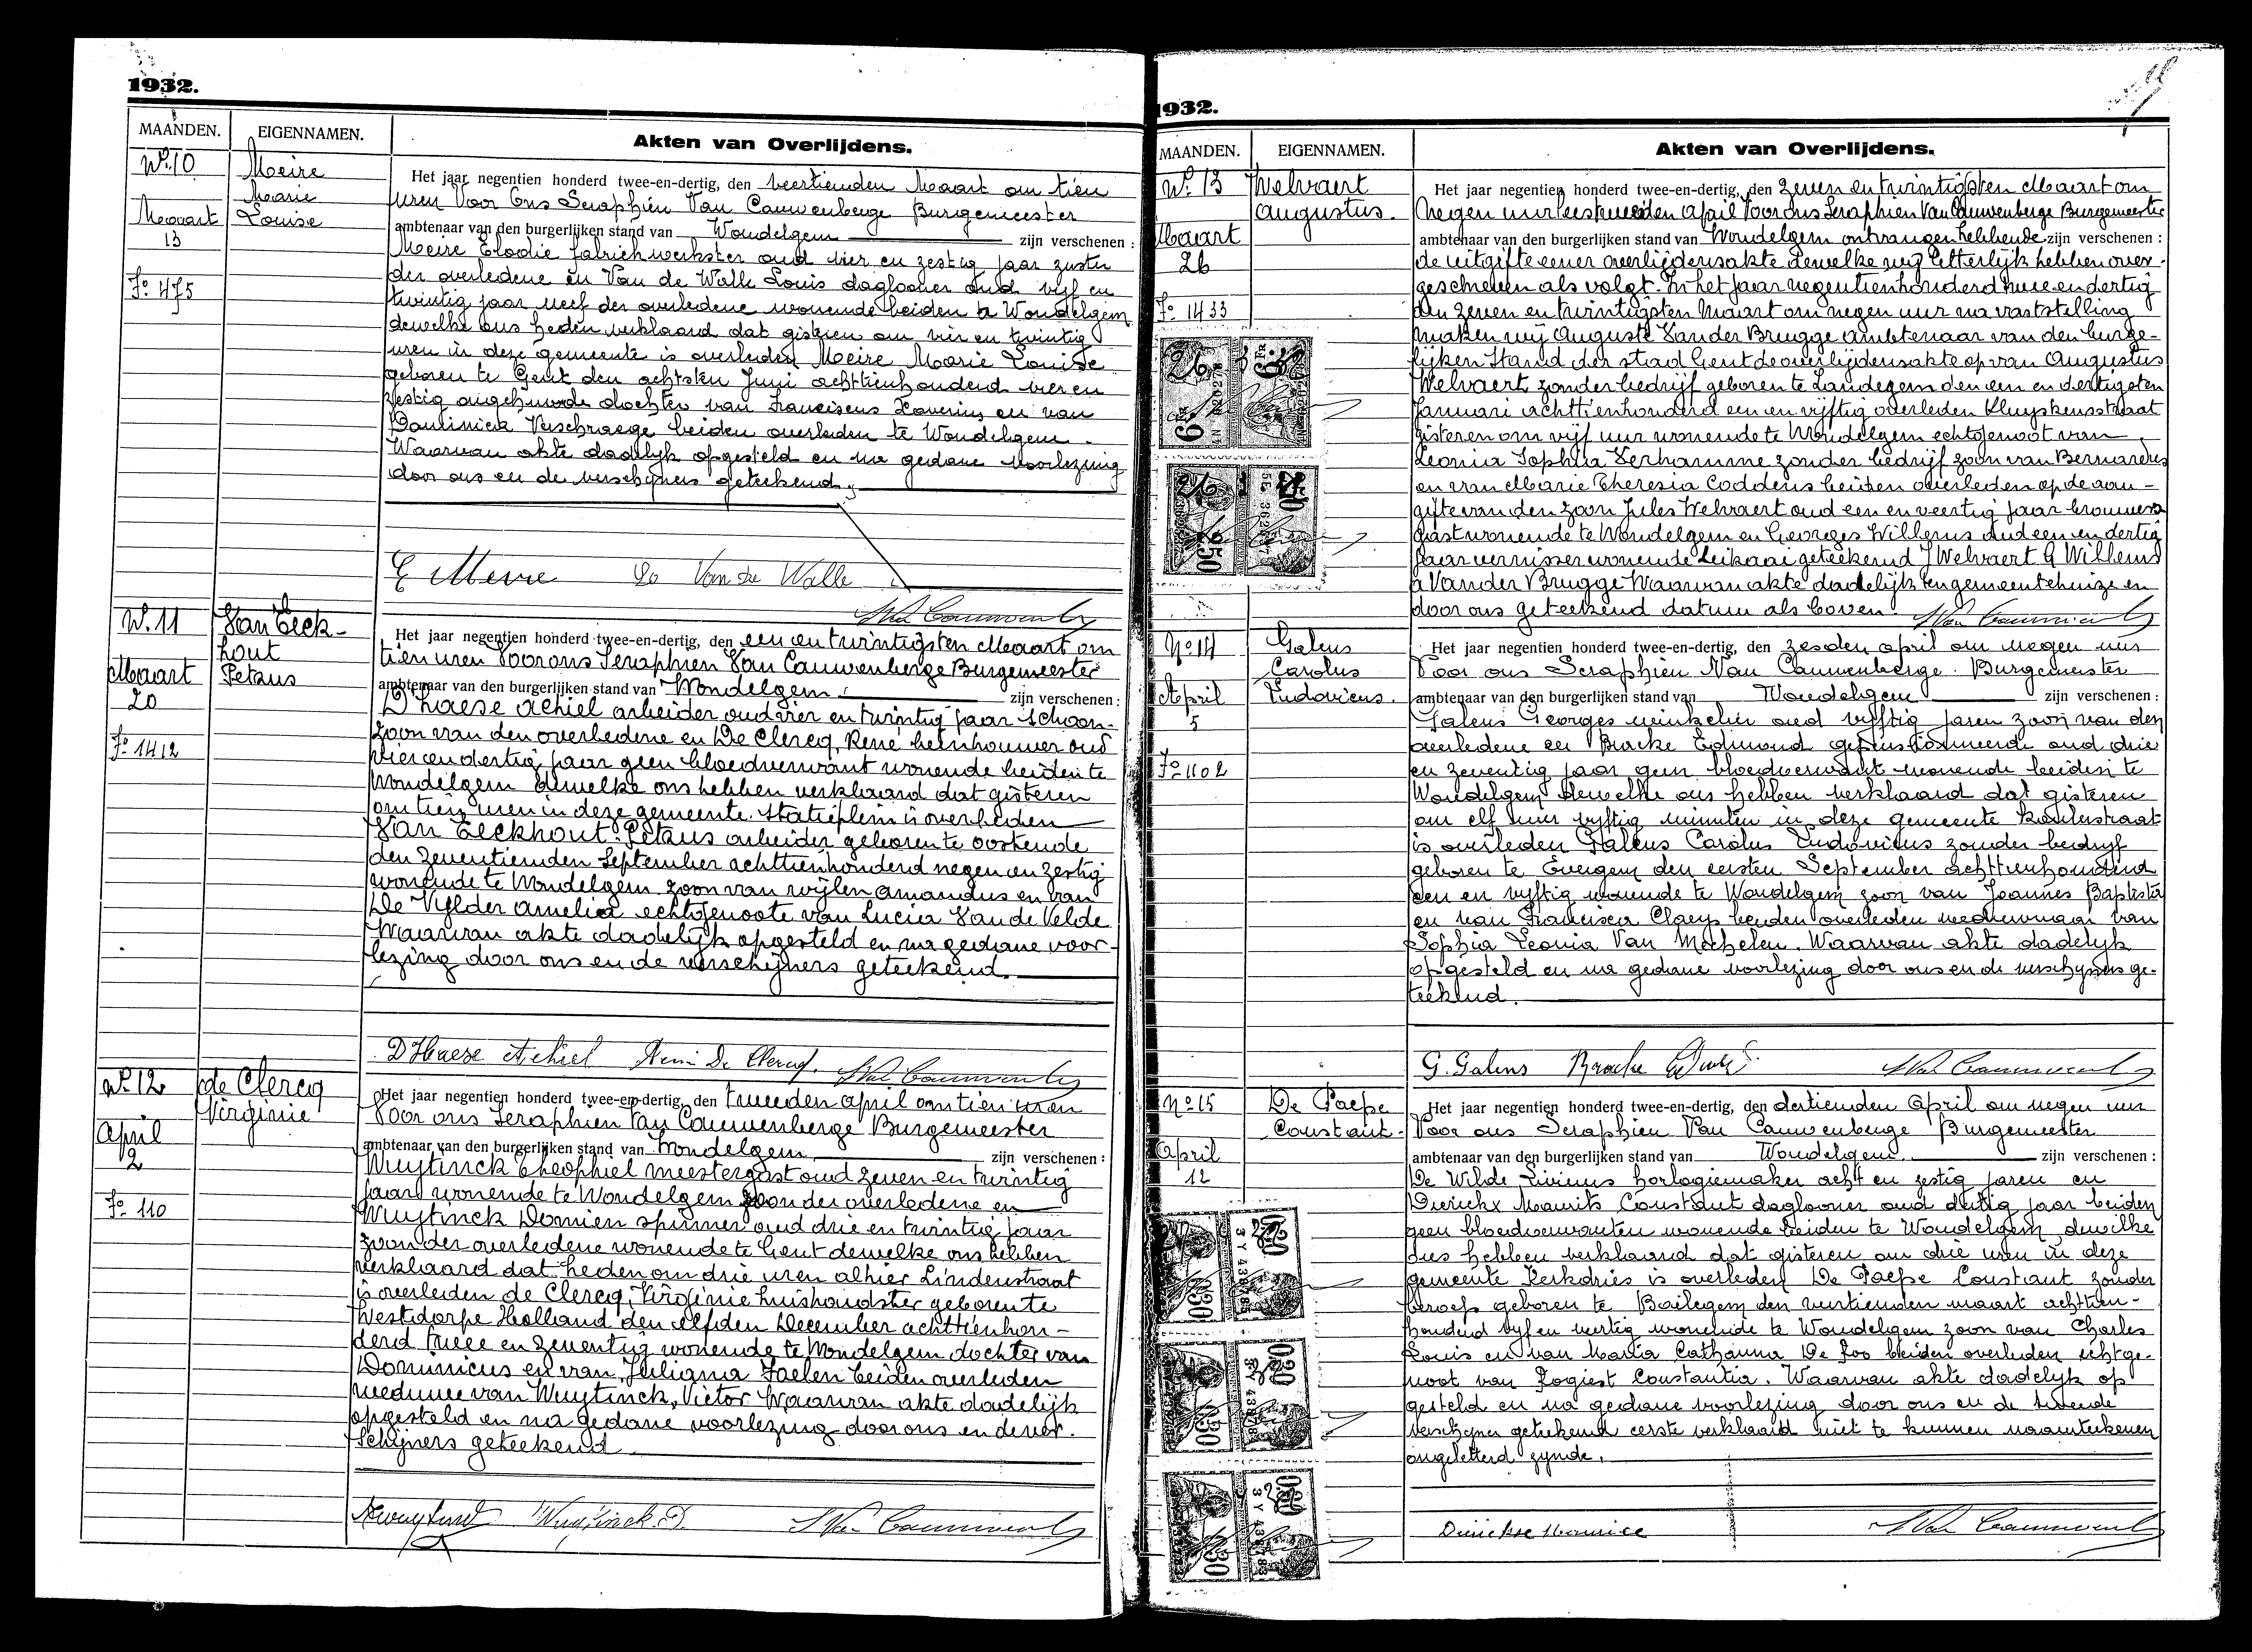 1932.
MAANDEN.
EIGENNAMEN.
Akten van Overlijdens.
No. 10
Meire
Marie
Louise
Maart
13
Fo. 475
Het jaar negentien honderd twee-en-dertig, den veertienden Maart om tien
uren Voor Ons Seraphien Van Cauwenberge Burgemeester
ambtenaar van den burgerlijken stand van Wondelgem zijn verschenen :
Meire Elodie fabriekwerkster oud vier en zestig jaar zuster
der overledene en Van de Walle Louis daglooner oud vijf en
twintig jaar neef der overledene wonende beiden te Wondelgem
dewelke ons heden verklaard dat gisteren om vier en twintig
uren in deze gemeente is overleden Meire Marie Louise
geboren te Gent den achtsten Juni achttienhonderd vier en
zestig ongehuwde dochter van Franciscus Xaverius en van
Paulinica Verschraege beiden overleden te Wondelgem.
Waarvan akte dadelijk opgesteld en na gedane voorlezing
door ons en de verschijners geteekend.
E Meire Lo Van de Walle
No. 11
Van Eeck-
hout
Petrus
Maart
20
Fo. 1412
Het jaar negentien honderd twee-en-dertig, den een en twintigsten Maart om
tien uren Voor ons Seraphien Van Cauwenberge Burgemeester
ambtenaar van den burgerlijken stand van Wondelgem zijn verschenen :
D'haese Achiel arbeider oud vier en twintig jaar schoon-
zoon van den overledene en De Clercq, René beenhouwer oud
vier en dertig jaar geen bloedverwant wonende beiden te
Wondelgem dewelke ons hebben verklaard dat gisteren
om tien uren in deze gemeente. Statieplein is overleden
Van Eeckhout Petrus arbeider geboren te Oostende
den zeventienden September achttienhonderd negen en zestig
wonende te Wondelgem zoon van wijlen Amandus en van
De Vylder Amelia echtgenoote van Lucia Van de Velde
Waarvan akte dadelijk opgesteld en na gedane voor-
lezing door ons en de verschijners geteekend.
D'Haese Achiel René De Clercq.
No. 12
de Clercq
Virginie
April
2
Fo. 110
Het jaar negentien honderd twee-en-dertig, den tweeden april om tien uren
Voor ons Seraphien Van Cauwenberge Burgemeester
ambtenaar van den burgerlijken stand van Wondelgem zijn verschenen :
Wuytinck Theophiel meestergast oud zeven en twintig
jaar wonende te Wondelgem zoon der overledene en
Wuytinck Domien spinner oud drie en twintig jaar
zoon der overledene wonende te Gent dewelke ons hebben
verklaard dat heden om drie uren alhier Lindenstraat
is overleden de Clercq, Virginie huishoudster geboren te
Westdorpe Holland den elfden December achttienhon-
derd twee en zeventig wonende te Wondelgem dochter van
Dominicus en van Juliana Faelen beiden overleden
weduwe van Wuytinck, Victor Waarvan akte dadelijk
opgesteld en na gedane voorlezing door ons en de ver-
schijners geteekend
Wuytinck D.
1932.
MAANDEN.
EIGENNAMEN.
Akten van Overlijdens.
No. 13
Welvaert
Augustus.
Maart
26
Fo. 1433
Het jaar negentien honderd twee-en-dertig, den zeven en twintigsten Maart om
negen uur april Voor ons Seraphien Van Cauwenberge Burgemeester
ambtenaar van den burgerlijken stand van Wondelgem ontvangen hebbende zijn verschenen :
de uitgifte eener overlijdensakte dewelke wij letterlijk hebben over-
geschreven als volgt. In het jaar negentienhonderd twee en dertig
den zeven en twintigsten Maart om negen uur na vaststelling
maken wij Auguste Van der Brugge ambtenaar van den burge-
lijken Stand der stad Gent de overlijdensakte op van Augustus
Welvaert zonder bedrijf geboren te Landegem den een en dertigsten
Januari achttienhonderd een en vijftig overleden Kluyskensstraat
gisteren om vijf uur wonende te Wondelgem echtgenoot van
Leonia Sophia Verhamme zonder bedrijf zoon van Bernardus
en van Marie Theresia Coddens beiden overleden op de aan-
gifte van den zoon Jules Welvaert oud een en veertig jaar brouwers
gast wonende te Wondelgem en Georges Willems oud een en dertig
jaar vernisser wonende Leikaai geteekend J Welvaert G Willems
A Van der Brugge Waarvan akte dadelijk ten gemeentehuize en
door ons geteekend datum als boven.
No 14
Galens
Carolus
Ludovicus.
April
5
Fo 1102
Het jaar negentien honderd twee-en-dertig, den zesden april om negen uur
Voor ons Seraphien Van Cauwenberge Burgemeester
ambtenaar van den burgerlijken stand van Wondelgem zijn verschenen :
Galens Georges winkelier oud vijftig jaren zoon van den
overledene en Bracke Edmond gepensionneerde oud drie
en zeventig jaar geen bloedverwant wonende beiden te
Wondelgem dewelke ons hebben verklaard dat gisteren
om elf uur vyftig minuten in deze gemeente
is overleden Galens Carolus Ludovicus zonder bedrijf
geboren te Evergem den eersten September achttienhonderd
een en vyftig wonende te Wondelgem zoon van Joannes Baptista
en van Francisca Claeys beiden overleden weduwnaar van
Sophia Leonia Van Mechelen. Waarvan akte dadelyk
opgesteld en na gedane voorlezing door ons en de verschyners ge-
teekend.
G. Galens Bracke
No 15
De Paepe
Constant.
April
12
Het jaar negentien honderd twee-en-dertig, den dertienden April om negen uur
Voor ons Seraphien Van Cauwenberge Burgemeester
ambtenaar van den burgerlijken stand van Wondelgem zijn verschenen :
De Wilde Livinus horlogiemaker acht en zestig jaren en
Dierickx Maurits Constant daglooner oud dertig jaar beiden
geen bloedverwanten wonende beiden te Wondelgem dewelke
ons hebben verklaard dat gisteren om drie uren in deze
gemeente Kerkdries is overleden De Paepe Constant zonder
beroep geboren te Bailegem den veertienden maart achttien-
honderd vyf en veertig wonende te Wondelgem zoon van Charles
Louis en van Maria Catharina De Roo beiden overleden echtge-
noot van Rogiest Constantia. Waarvan akte dadelyk op
gesteld en na gedane voorlezing door ons en de tweede
verschyner geteekend eerste verklaard niet te kunnen naamteekenen
ongeletterd zynde.